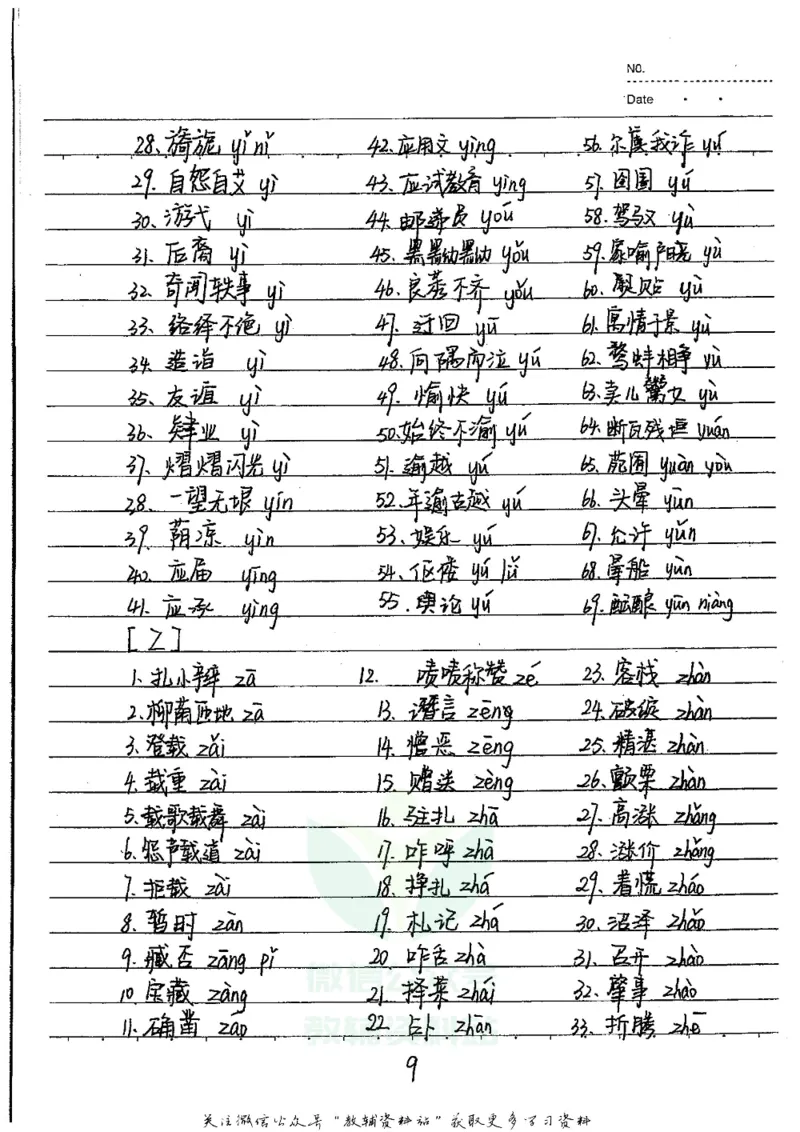 NO.
Date
28、旖旎 yǐ nǐ
29. 自怨自艾 yì
30、游弋 yì
31. 后裔 yì
32. 奇闻轶事 yì
33. 络绎不绝 yì
34. 造诣 yì
35、友谊 yì
36、肄业 yì
37、熠熠闪光 yì
38、一望无垠 yín
39. 荫凉 yìn
40. 应届 yīng
41. 应承 yìng
42.应用文 yìng
43、应试教育 yìng
44. 邮递员 yóu
45、黑黝黝 yǒu
46、良莠不齐 yǒu
47、迂回 yū
48、向隅而泣 yú
49、愉快 yú
50.始终不渝 yú
51.逾越 yú
52.年逾古稀 yú
53、娱乐 yú
54、伛偻 yǔ lǚ
55.舆论 yú
56.尔虞我诈 yú
57.囹圄 yǔ
58.驾驭 yù
59.家喻户晓 yù
60.熨贴 yù
61.寓情于景 yù
62.鹬蚌相争 yù
63.卖儿鬻女 yù
64.断瓦残垣 yuán
65、苑囿 yuàn yòu
66、头晕 yūn
67、允许 yǔn
68.晕船 yùn
69.酝酿 yùn niàng
[Z]
1、扎小辫 zā
2.柳荫匝地 zā
3.登载 zǎi
4.载重 zài
5.载歌载舞 zài
6.怨声载道 zài
7、拒载 zài
8、暂时 zàn
9、臧否 zāng pǐ
10.宝藏 zàng
11.确凿 záo
12. 啧啧称赞 zé
13、谮言 zèng
14、憎恶 zēng
15、赠送 zèng
16、驻扎 zhā
17、咋呼 zhā
18、挣扎 zhá
19、札记 zhá
20、咋舌 zhà
21、择菜 zhái
22、占卜 zhān
23、客栈 zhàn
24、破绽 zhàn
25、精湛 zhàn
26、颤栗 zhàn
27、高涨 zhǎng
28、涨价 zhǎng
29、着慌 zháo
30、沼泽 zhǎo
31、召开 zhào
32、肇事 zhào
33、折腾 zhē
微信公众号
教辅资料站
9
关注微信公众号“教辅资料站”获取更多学习资料